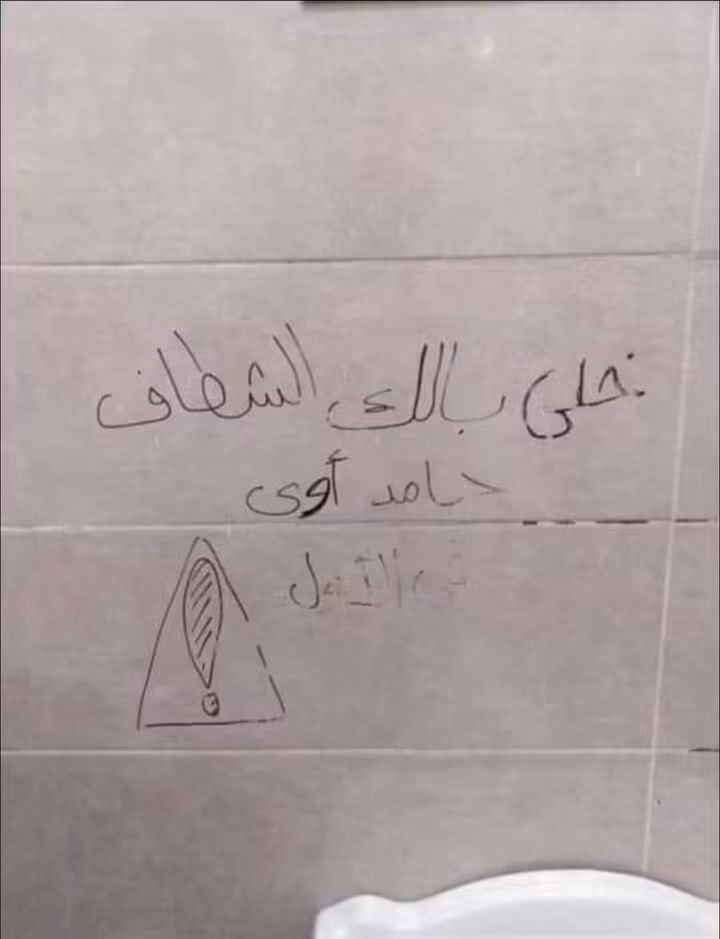 خلي بالك الشطاف
جامد أوى
في